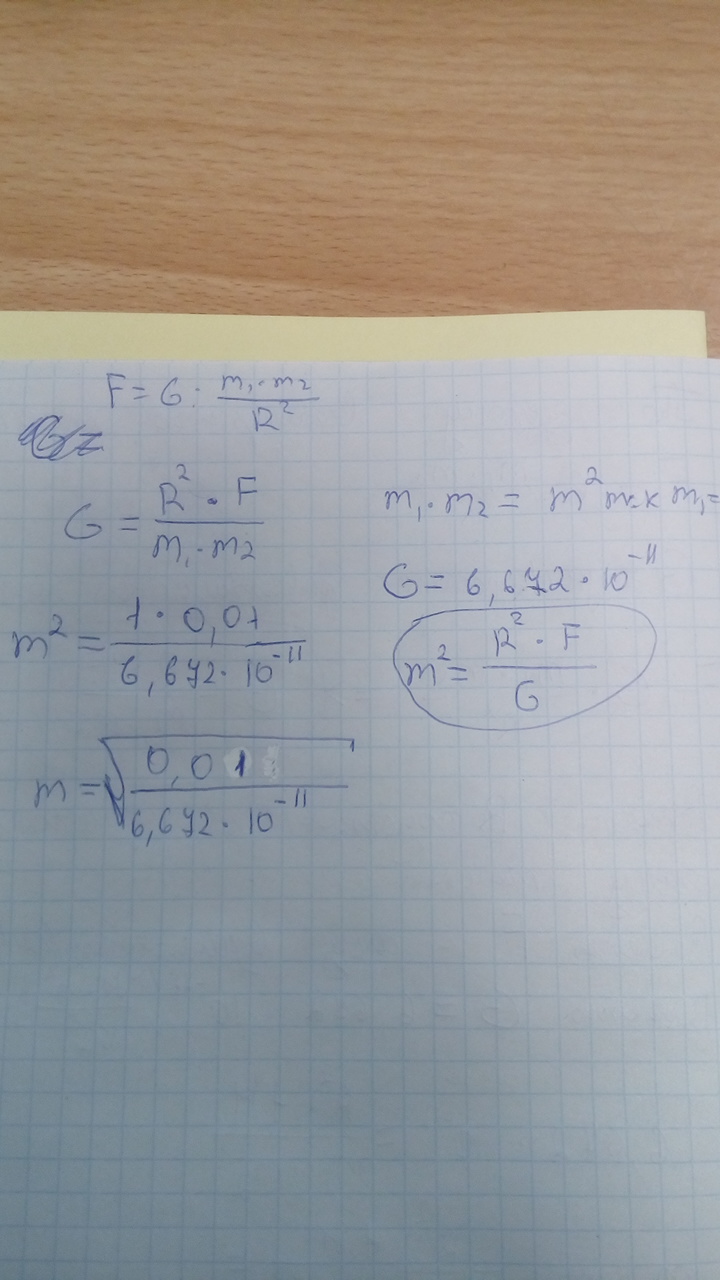 F = G · m₁·m₂ / R²
G = R² · F / m₁·m₂
m₁·m₂ = m² т.к m₁=
G = 6,672·10⁻¹¹
m² = 1·0,01 / 6,672·10⁻¹¹
m² = R²·F / G
m = √(0,01 / 6,672·10⁻¹¹)